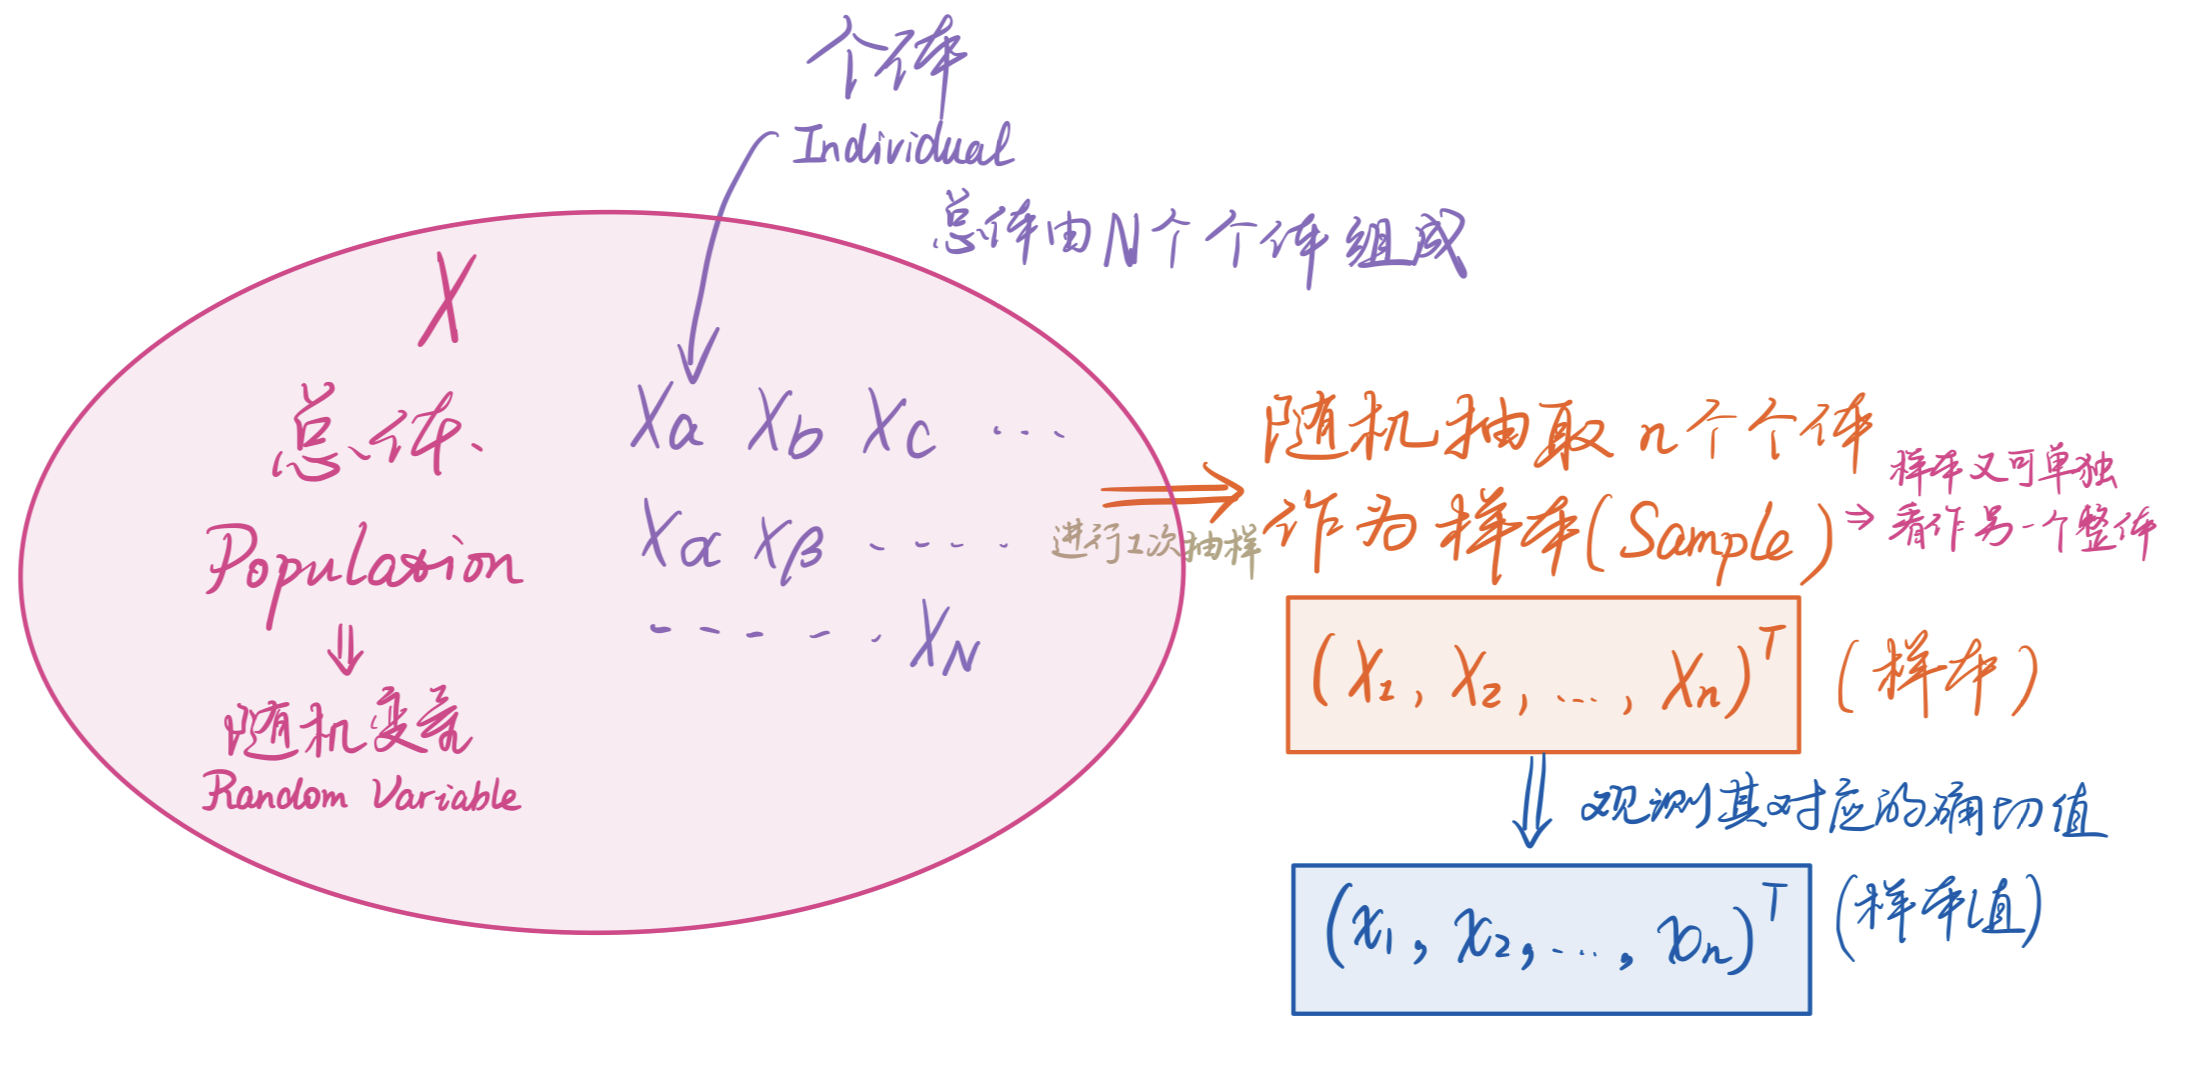 个体
Individual
总体由N个个体组成
X
总体
Population
⇓
随机变量
Random Variable
Xa Xb Xc ...
Xα Xβ ....
..... XN
进行1次抽样
随机抽取n个个体
作为样本(Sample)
⇒ 样本又可单独
看作另一个整体
(X1, X2, ..., Xn)^T (样本)
观测其对应的确切值
(x1, x2, ..., xn)^T (样本值)